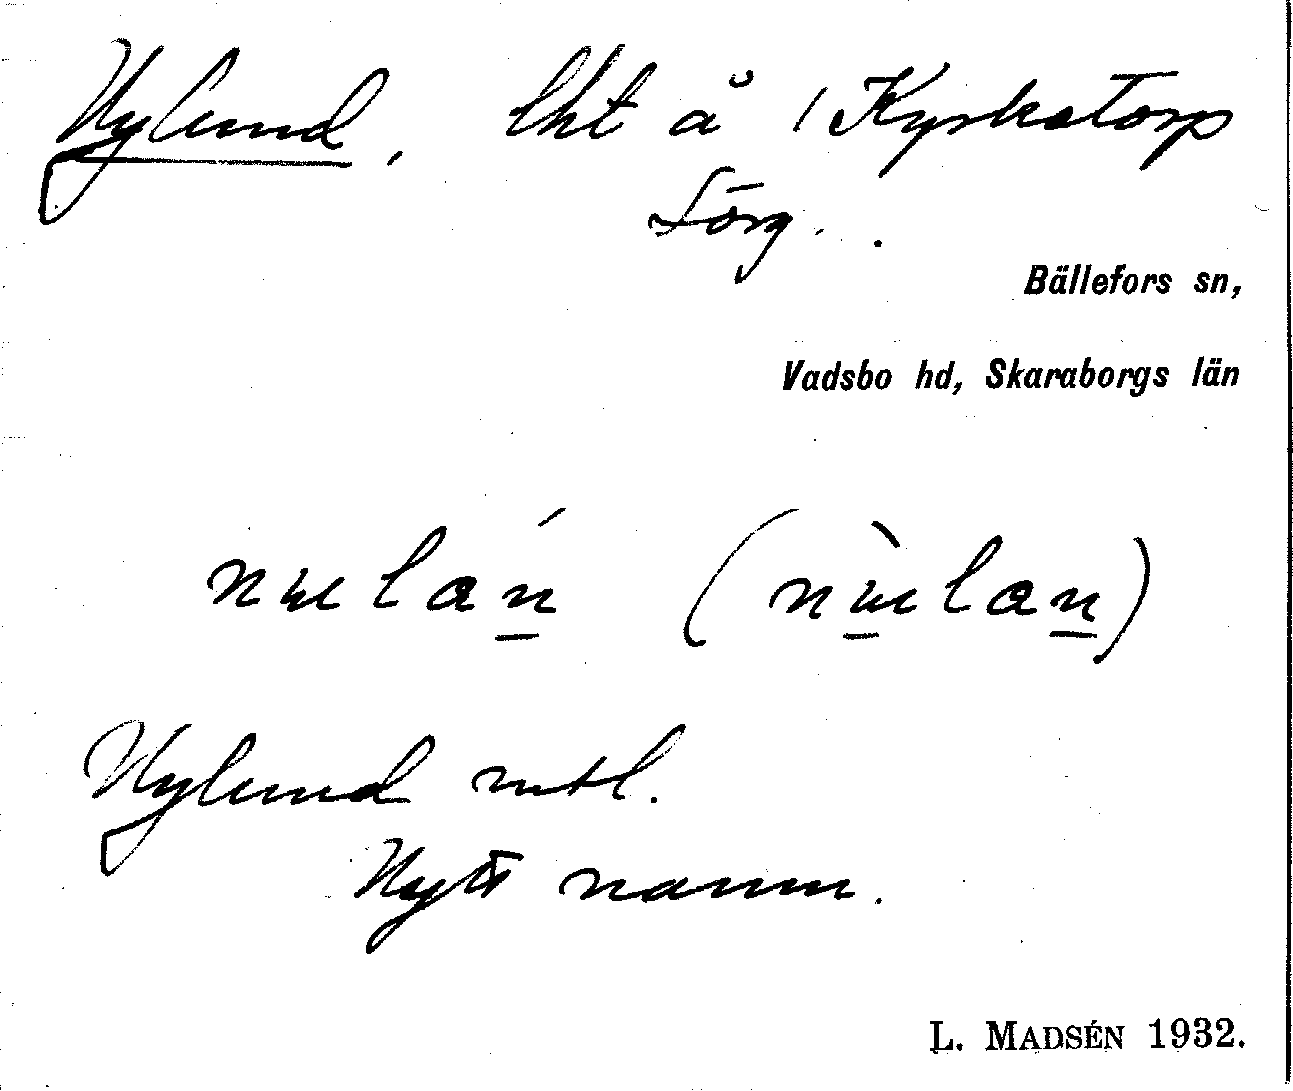 Nylund, lht å 1 Kyrketorp
Sörg.
Bällefors sn,
Vadsbo hd, Skaraborgs län
Nylund mtl.
Nytt namn.
L. MADSÉN 1932.